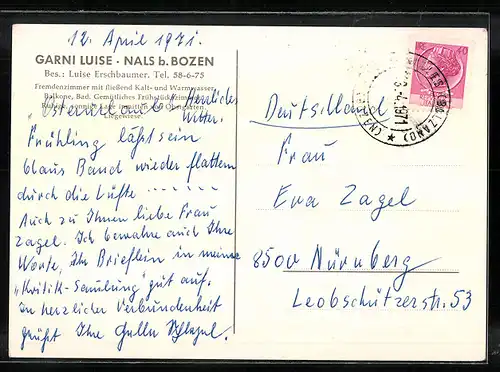 12. April 1971.
GARNI LUISE · NALS b. BOZEN
Bes.: Luise Erschbaumer, Tel. 58-6-75
Fremdenzimmer mit fließend Kalt- und Warmwasser,
Balkone, Bad. Gemütliches Frühstückszimmer.
Ruhige, sonnige Lage inmitten von Obstgärten.
Liegewiese.
Herrliches
Wetter.
Frühling läßt sein
blaues Band wieder flattern
durch die Lüfte ......
Auch zu Ihnen liebe Frau
Zagel. Ich bewahre auch Ihre
Worte, Ihr Brieflein in meine
"Kritik-Samlung" gut auf.
In herzlicher Verbundenheit
grüßt Ihre
Deutschland
Frau
Eva Zagel
8500 Nürnberg
Leobschützerstr. 53
1971
(BOLZANO)